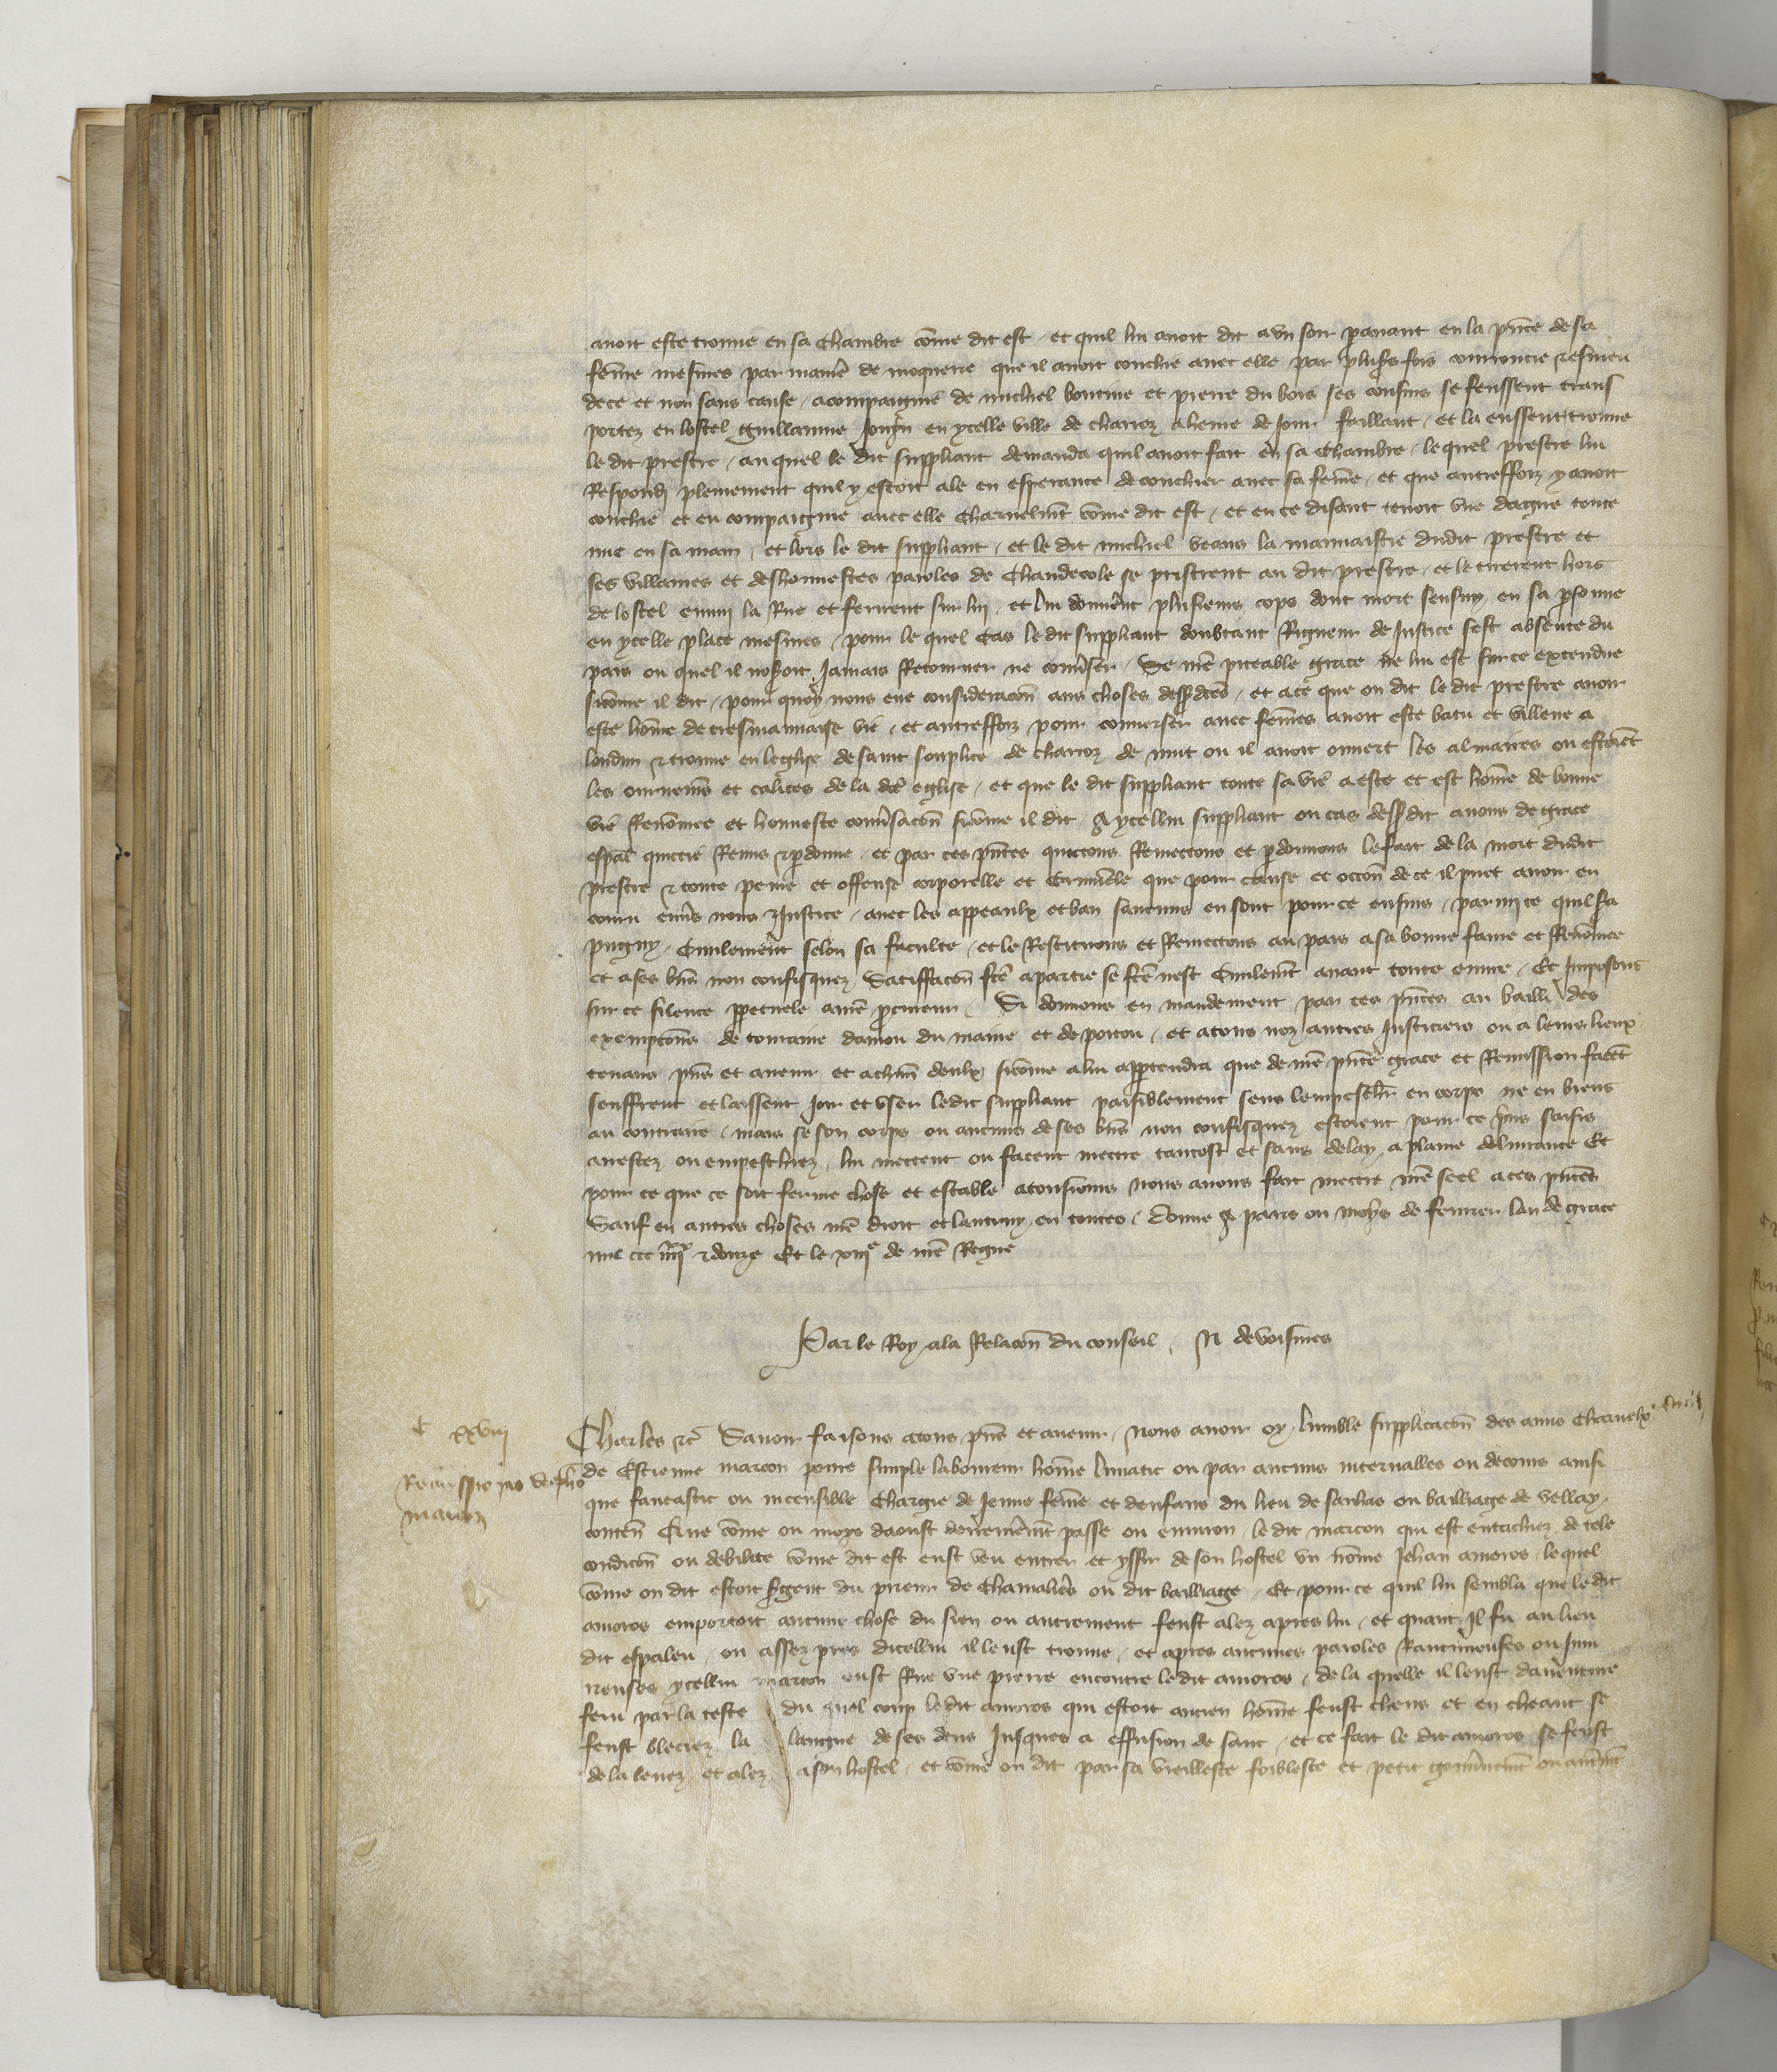 avoit este trouve en sa chambre cõme dit est / et quil lui avoit dit a un soir paravant en la pñce de sa
fẽme mesmes par manie de moquerie que il avoit couchie avec elle par plusrs fois courroucie & esmeu
de ce et non sans cause / acompaigne de michiel boutine et pierre du bois ses cousins se feussent trans
portez en lostel guillaume Jouyn en ycelle ville de charroz a heure de jour faillant / et la eussent trouve
le dit prestre / au quel le dit suppliant demanda quil avoit fait en sa chambre / le quel prestre lui
Respondi plainement quil y estoit ale en esperance de couchier avec sa fẽme / et que autreffoiz y avoit
couchie et eu compaignie avec elle charnelmẽt cõme dit est / et en ce disant tenoit une dague toute
nue en sa main / et lors le dit suppliant / et le dit michiel veans la mauvaistie dudit prestre et
ses villaines et deshonnestes paroles de chaudecole se pristrent au dit prestre / et le tirerent hors
de lostel emmi la Rue et ferirent sur lui / et lui donnerẽt plusieurs cops dont mort sensuy en sa psonne
en ycelle place mesmes / pour le quel cas le dit suppliant doubtant Rigueur de Justice sest absente du
pais ou quel il noseroit Jamais Retourner ne conṽser / Se ñre piteable grace ne lui est sur ce extendue
sicõme il dit / pour quoy nous eue consideracõn aus choses dessdictes / et a ce que on dit le dit prestre avoir
este hõme de tresmauvaise vie / et autreffoiz pour converser avec fẽmes avoit este batu et villene a
loudun & trouve en leglise de saint souplice de charroz de nuit ou il avoit ouvert les almaires ou estoiẽt
les ournemẽs et calices de la dcẽ eglise / et que le dit suppliant toute sa vie a este et est hõme de bonne
vie Renõmee et honneste convsacõn sicõme il dit / A ycellui suppliant ou cas dessdit avons de grace
espãl quictie Remis & pdonne / et par ces pñtes quictons Remectons et pdonnons le fait de la mort dudit
prestre & toute peine et offense corporelle et Criminele que pour cause et occõn de ce il puet avoir en
couru envs nous & Justice / avec les appeaulx et ban saucuns en sont pour ce ensuis / parmi ce quil sa
pugny Civilement selon sa faculte / et le Restituons et Remectons au pais a sa bonne fame et Renõmee
et a ses bñs non confisquez Satisffacõn fcẽ a partie se fcẽ nest Civilemẽt avant toute euvre / Et Imposons
sur ce silence ppetuele a ñre pcureur / Si donnons en mandement par ces pñtes au bailli des
exempcõns de touraine danjou du maine et de poitou / et a touz noz autres Justiciers ou a leurs lieux
tenans pñs et avenir et a chũn deulx sicõme a lui apptendra que de ñre pñte grace et Remission facẽt
seuffrent et laissent Joir et user le dit suppliant paisiblement senz lempeschier en corps ne en biens
au contraire / mais se son corps ou aucuns de ses bñs non confisquez estoient pour ce pris saisis
arrestez ou empeschiez / lui mectent ou facent mectre tantost et sans delay a plaine delivrance Et
pour ce que ce soit ferme chose et estable a tousiours nous avons fait mectre ñre seel a ces pñtes
Sauf en autres choses ñre droit et lautruy en toutes / Donne a paris ou moys de fevrier lan de grace
mil ccc iiiixx & douze Et le xiiie de ñre Regne
Par le Roy a la Relacõn du conseil / N de voisines
xxviii
Remissio pro stephõ
marcon
Charles &c Savoir faisons a tous pñs et avenir / Nous avoir oy lumble supplicacõn des amis charnelx
de Estienne marcon povre simple laboureur hõme lunatic ou par aucuns intervalles ou decours ainsi
que fantastic ou incensible chargie de Jeune fẽme et denfans du lieu de sanhac ou bailliage de vellay
conteñ Que cõme ou moys daoust derrenieremẽt passe ou environ / le dit marcon qui est entachiez de tele
condicõn ou debilite cõme dit est eust veu entrer et yssir de son hostel un nõme Jehan amoros / le quel
cõme on dit estoit sgent du prieur de chamalieres ou dit bailliage / Et pour ce quil lui sembla que le dit
amoros emportoit aucune chose du sien ou autrement feust alez apres lui / et quant Il fu au lieu
dit espaleu / ou assez pres dicellui il leust trouve / et apres aucunes paroles Rancuneuses ou Inju
rieuses ycellui marcon eust Rue une pierre encontre le dit amoros / de la quelle il leust daventure
feru par la teste du quel coup le dit amoros qui estoit ancien hõme feust cheus et en cheant se
feust bleciez la langue de ses dens Jusques a effusion de sanc / et ce fait le dit amoros se feust
de la levez et alez a son hostel / et cõme on dit par sa vieillesse foiblesce et petit gouvnemẽt ou autrmẽt